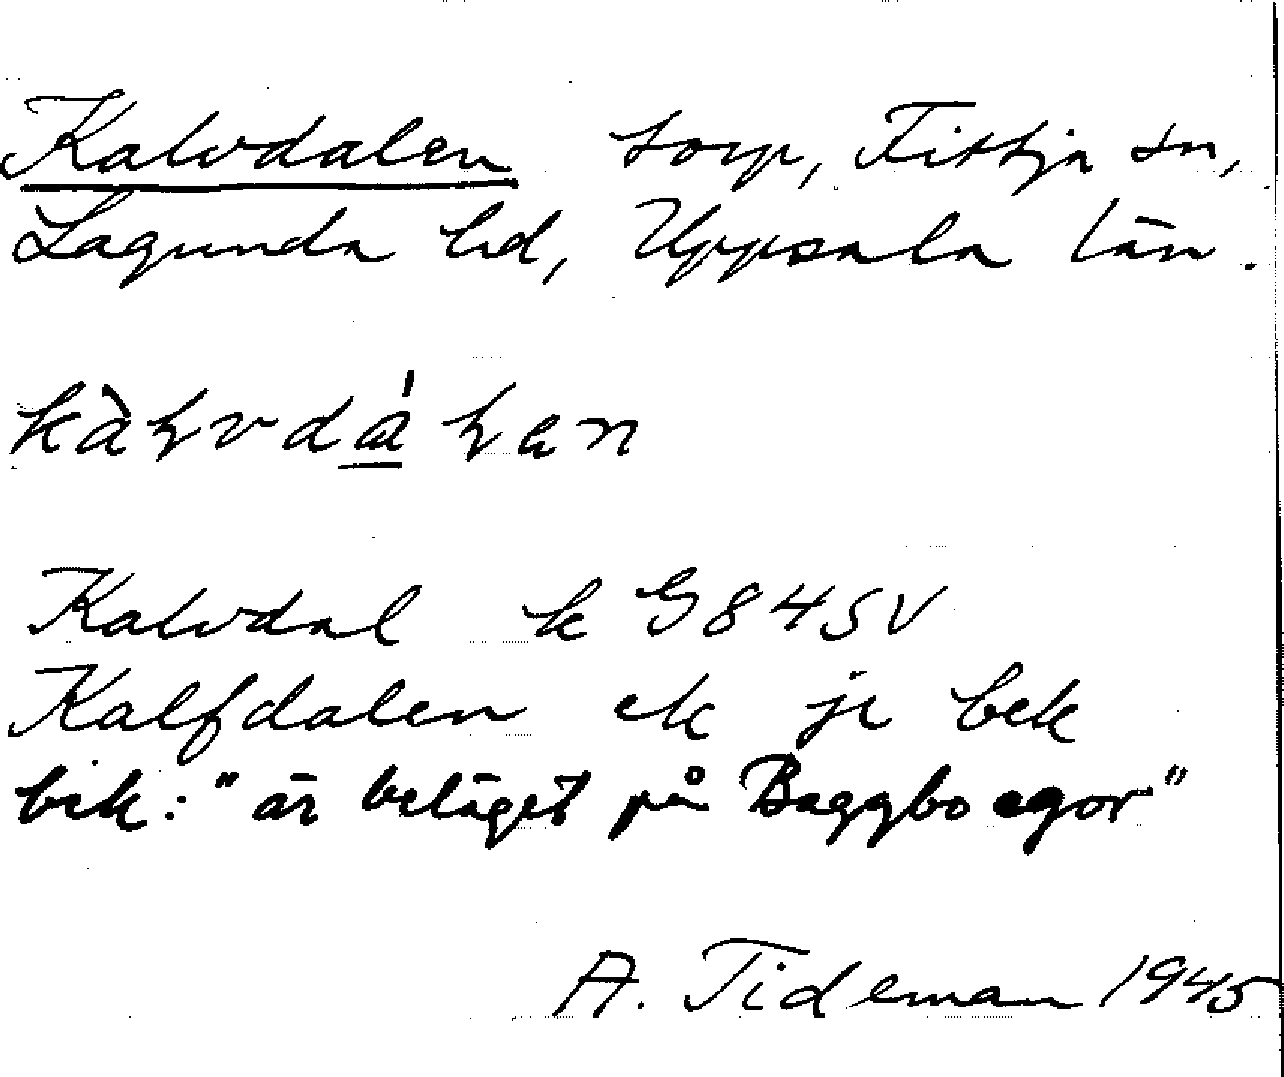 Kalvdalen torp, Fittja sn,
Lagunda hd, Uppsala län.
kàɫvdá̱ɫan
Kalvdal k G 84 SV
Kalfdalen ek je bek
bek: "är beläget på Baggbo egor"
A. Tideman 1945